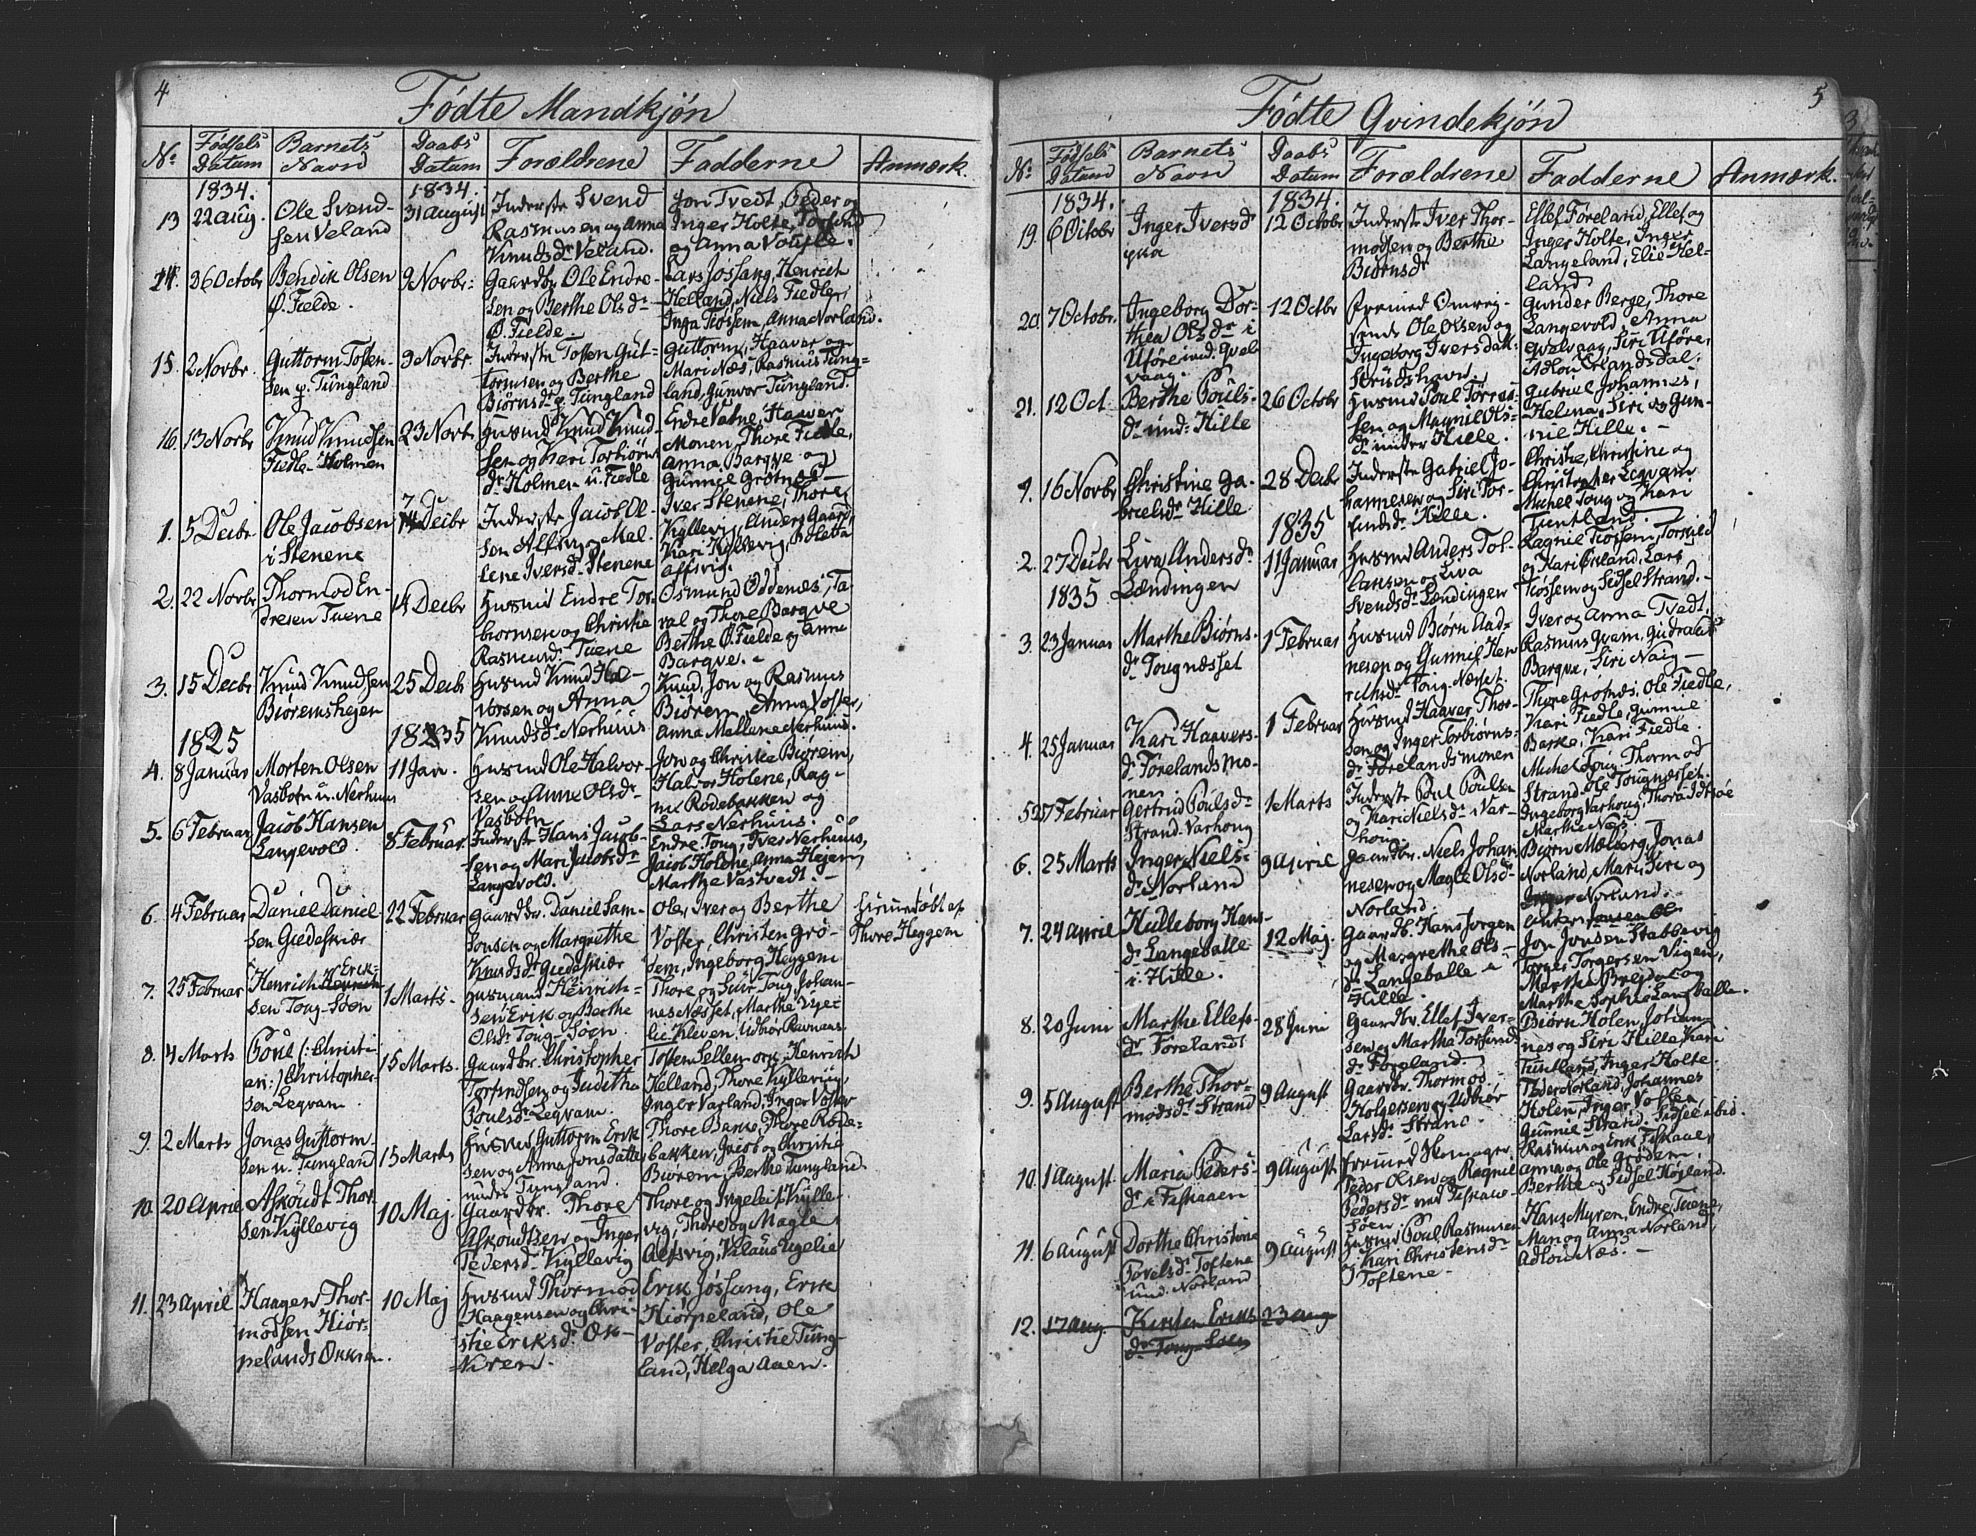 4
Fødte Mandkjøn
No
Fødsels Datum
Barnets Navn
Daabs Datum
Forældrene
Fadderne
Anmærk.
1834.
1834.
13
22 Aug.
Ole Svend-
sen Veland
31 August
Inderste Svend
Rasmusen og Anna
Knudsdr Veland.
Jon Tvedt, Peder og
Inger Holte, Torfind
og Anna
14.
26 Octobr
Bendik Olsen
Ø. Fielde.
9 Novbr:
Gaardbr Ole Endre-
sen og Berthe Olsdr
Ø. Fielde.
Lars Jøssang, Henrich
Helland, Niels Fiedler,
Inga Tiøssem, Anna Norland.
15.
2 Novbr.
Guttorm Tosten-
sen p. Tungland
9 Novbr.
Inderste Tosten Gut-
tormsen og Berthe
Biørnsdr p. Tungland
Guttorm, Haaver og
Mari Næs, Rasmus Tung-
land, Gunvor Tungland.
16.
13 Novbr
Knud Knudsen
Fiedle-Holmen
23 Novb.
Husmd Knud Knud-
sen og Kari Torbiørns
dr Holmen u. Fiedle
Endre Vatne, Haaver
Monen, Thore Fiedle,
Anna Barqve og
Gunnile Grøtnes
1.
5 Decbr
Ole Jacobsen
i Stenene
7
Decbr
Inderste Jacob Ol-
sen Alsvig og Mal-
lene Iversdr Stenene
Iver Stenene, Thore
Kyllevig, Anders Gaard,
Kari Kyllevig,
Alsvig.
2.
22 Novbr
Thormod En-
dresen Tuene
14 Decbr
Husmd Endre Tor-
biørnsen og Christie
Rasmusdr Tuene
Osmund Oddenæs, Ta-
ral og Thore Barqve
Berthe Ø. Fielde og Anne
Barqve. -
3.
15 Decbr
Knud Knudsen
Biøremshejen
25 Decbr
Husmd Knud Hal-
vorsen og Anna
Knudsdr Nerhuus
Knud, Jon og Rasmus
Biørem, Anna Voster,
Anna Mallene Nerhuus.
1825
1835
4.
8 Januar
Morten Olsen
Vasbotn u. Nerhuus
11 Jan.
Husmd Ole Halvor-
sen og Anne Olsdr
Vasbotn
Jon og Christie Biørem,
Halvor Holene, Rag-
nil Rødebakken og
Lars Nerhuus.
5.
6 Februar
Jacob Hansen
Langevold.
8 Februar
Inderste Hans Jacob-
sen og Mari Jacobsdr
Langevold.
Endre Toug, Iver Nerhuus,
Jacob Holene, Anna Hejem,
Marthe Vastvedt. -
6.
4 Februar
Daniel Daniel-
sen Giedeskiær
22 Februar
Gaardbr. Daniel Sam-
sonsen og Margrethe
Knudsdr Giedeskiær
Ole, Iver og Berthe
Voster, Christen Grø-
dem, Ingeborg Heggem
Hiemedøbt af
Thore Heggem
7.
25 Februar
Henrich Erik-
Henrich
sen Toug-Søen
1 Marts.
Husmand Henrich-
sen Erik og Berthe
Olsdr Toug-Søen.
Thore og Siri Toug, Johan-
nes Næsset, Marthe
lie Kleven, Udbiør Ravnaas.
8.
4 Marts
Povel (: Christi
an:) Christopher
sen Leqvam
15 Marts.
Gaardbr. Christopher
Torfindsen og Juditha
Poulsdr Leqvam.
Tosten Sellemork, Henrich
Helland, Thore Kyllevig,
Inger Varland, Inger Voster
9.
2 Marts
Jonas Guttorm-
sen u. Tungland
15 Marts
Husmd Guttorm Erik
sen og Anna Jonsdatter
under Tungland.
Thore Barke, Thore Røde-
bakken, Jacob og Christie
Biørem, Berthe Tungland
10.
20 April
Askoudt Thor-
sen Kyllevig
10 Maj
Gaardbr. Thore
Askoudtsen og Inger
Pedersdr Kyllevig
Thore og Ingeleif Kylle-
vig, Thore og Magle
Alsvig, Klaus Eigelie
11.
23 April
Haagen Thor-
modsen Hiør-
pelands Okken.
10 Maj
Husmd Thormod
Haagensen og Chri-
stie Eriksdr Ok-
keren.
Erik Jøssang, Erik
Hiørpeland, Ole
Voster, Christie Tung-
land, Helga Aaen.
5
Fødte Qvindekjøn
No
Fødsels Datum
Barnets Navn
Daabs Datum
Forældrene
Fadderne
Anmærk.
1834.
1834.
19.
6 Octobr
Inger Iversdr
12 Octobr
Inderste Iver Thor-
modsen og Berthe
Biørnsdr
Ellef Føreland, Ellef og
Inger Holte, Inger
Langeland, Elie Hel-
land
20.
7 Octobr.
Ingeborg Dor-
thea Olsdr i
Uføre ved Qvel-
vaag.
12 Octbr
Fremmed Omvrig-
ende Ole Olsen og
Ingeborg Iversdatt:
Strudshavn.
Gunder Berge, Thore
Langevold, Anna
Qvelvaag, Siri Uføre,
Adlou Ørlandsdal.
21.
12 Oct
Berthe Pouls-
dr und: Hille
26 Octobr
Husmd Poul Torris-
sen og Magnil Ols-
dr under Hille.
Gabriel, Johannes,
Helena, Siri og Gun-
nil Hille. -
1.
16 Novbr
Christine Ga-
brielsdr Hille
28 Decbr
Inderste Gabriel Jo-
hannesen og Siri Tor-
findsdr Hille.
Christie, Christine og
Christopher Leqvam
Michel Toug og Kari
Tuntland.
1835
2.
27 Decbr
Liva Andersdr
Lændingen
11 Januar
Husmd Anders Tol-
lansen og Liva
Svendsdr Lændingen
Ragnil Tiøssem, Torkild
og Kari Ørland, Lars
Tiøssem og Sidsel Strand. -
1835
3.
23 Januar
Marthe Biørns-
dr Tougnæsset
1 Februar
Husmd Biørn Aad-
nesen og Gunnil Hen
richsdr Toug-Næsset.
Iver og Anna Tvedt,
Rasmus Qvam, Gudrah
Barqve, Siri Naig -
4.
25 Januar
Kari Haavers-
dr Førelandsmo-
nen
1 Februar
Husmd Haaver Thor-
sen og Inger Torbiørns-
dr Førelandsmonen
Thore Grøtnæs, Ole Fiedle,
Kari Fiedle, Gunnie
Barke, Kari Fiedle.
5
27 Februar
Gertrud Poulsdr
Strand-Varhoug
1 Marts
Inderste Poul Poulsen
og Kari Nielsdr i Var-
houg.
Michel Toug, Thormod
Strand, Ole Tougnæsset,
Ingeborg Varhoug, Thora Idsøe
Marthe Næs. -
6.
25 Marts
Inger Niels-
dr Norland
9 April
Gaardbr. Niels Johan
nesen og Magle Olsdr
Norland.
Biørn Mølberg, Jonas
Norland, Mari, Siri og
Inger Norland.
7.
24 April
Hulleborg Hans-
dr Langeballe
i Hille.
12 Maj.
Gaardb. Hans Jørgen
og Margrethe Ols-
dr Langeballe i
Hille.
Jon Jonsen Stabbevig
Torger Torgersen Vigen,
Marthe Bredal og
Marthe Sophie Langeballe.
8.
20 Juni
Marthe Ellefs
dr Føreland
28 Juni
Gaardbr. Ellef Iver-
sen og Martha Torfinds
dr Føreland.
Biørn Holen, Johan-
nes og Siri Hille Kari
Tuntland, Inger Holte.
9.
5 August
Berthe Thor-
modsdr Strand
9 August
Gaardbr. Thormod
Holgersen og Udbiør
Larsdr Strand.
Peder Norland, Johannes
Holen, Inger Voster
Gunnil Strand, Sidsel ibid.
10.
1 August.
Maria Peders-
dr i Fiskaaen
9 August
Fremmed Skomager
Peder Olsen og Ragnil
Pedersdr ved Fiskaae
Søen.
Rasmus og Erik Fiskaae,
Anna og Ole Grødem,
Berthe og Sidsel Høgland.
11.
6 August
Dorthe Christine
Povelsdr Toftene
und. Norland
9 August
Husmd Poul Rasmusen
og Kari Christensdr
Toftene.
Hans Myren, Endre Tuene,
Mari og Anna Norland,
Adlou Næs. -
12.
17 Aug.
Kirsten Eriks
dr Toug-Søen
23 Aug